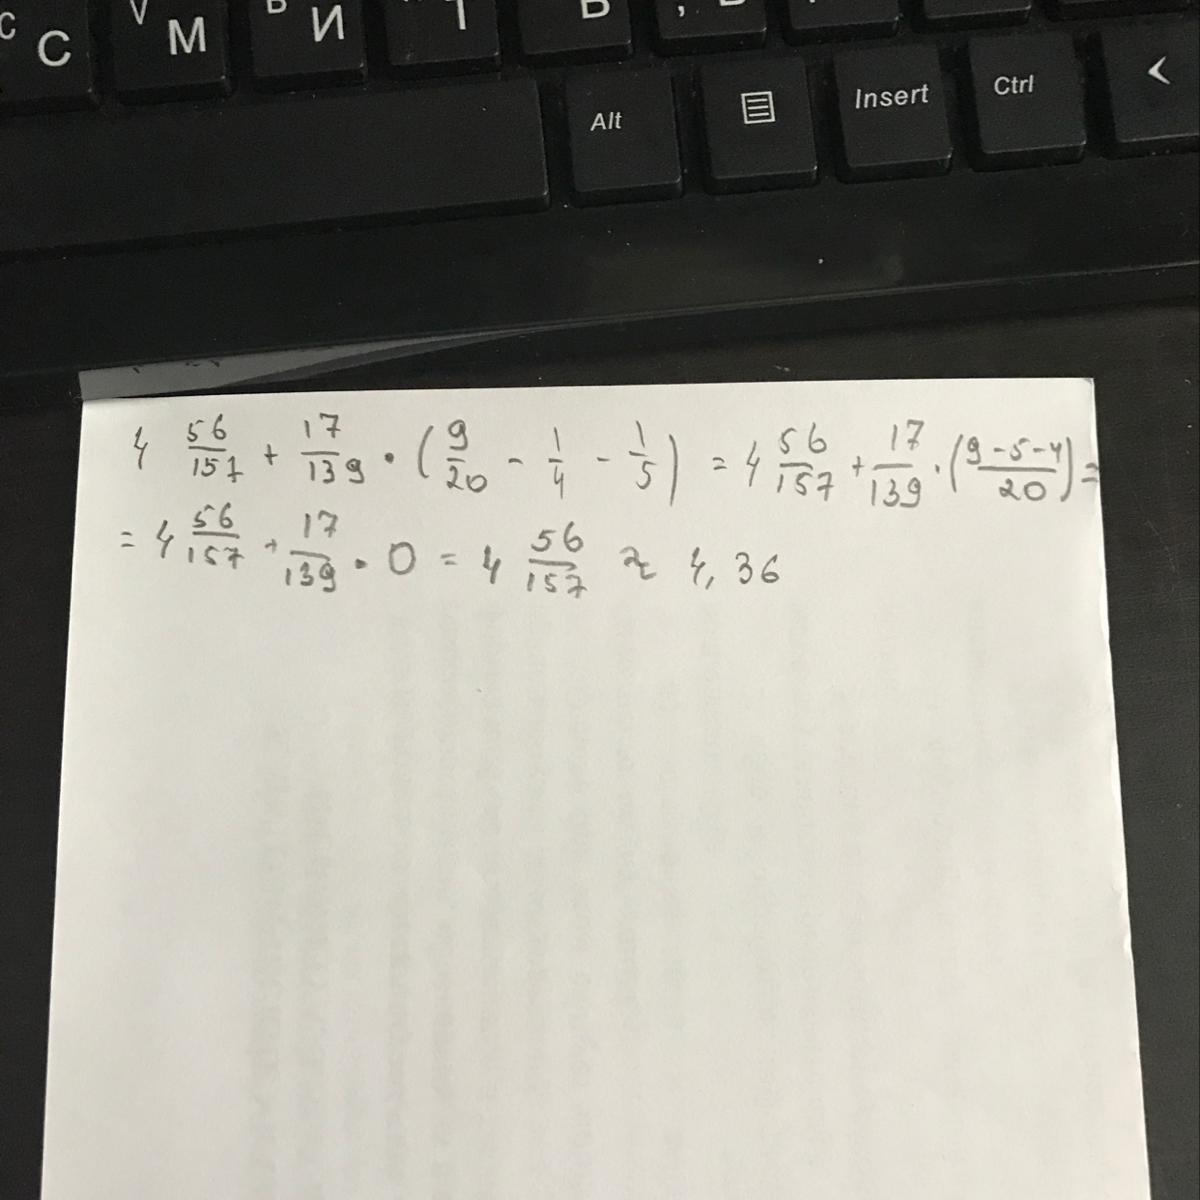 C C V M Ь И Т Б , .
Alt Insert Ctrl <
4 56/157 + 17/139 · (9/20 - 1/4 - 1/5) = 4 56/157 + 17/139 · (9-5-4/20) =
= 4 56/157 + 17/139 · 0 = 4 56/157 ≈ 4,36